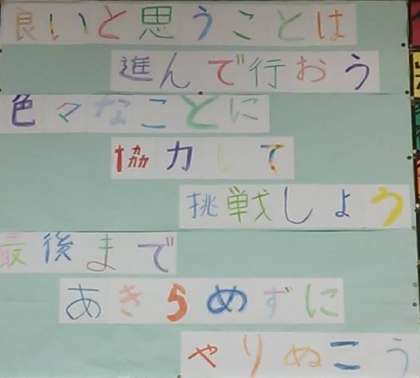 良いと思うことは
進んで行おう
色々なことに
協力して
挑戦しよう
最後まで
あきらめずに
やりぬこう